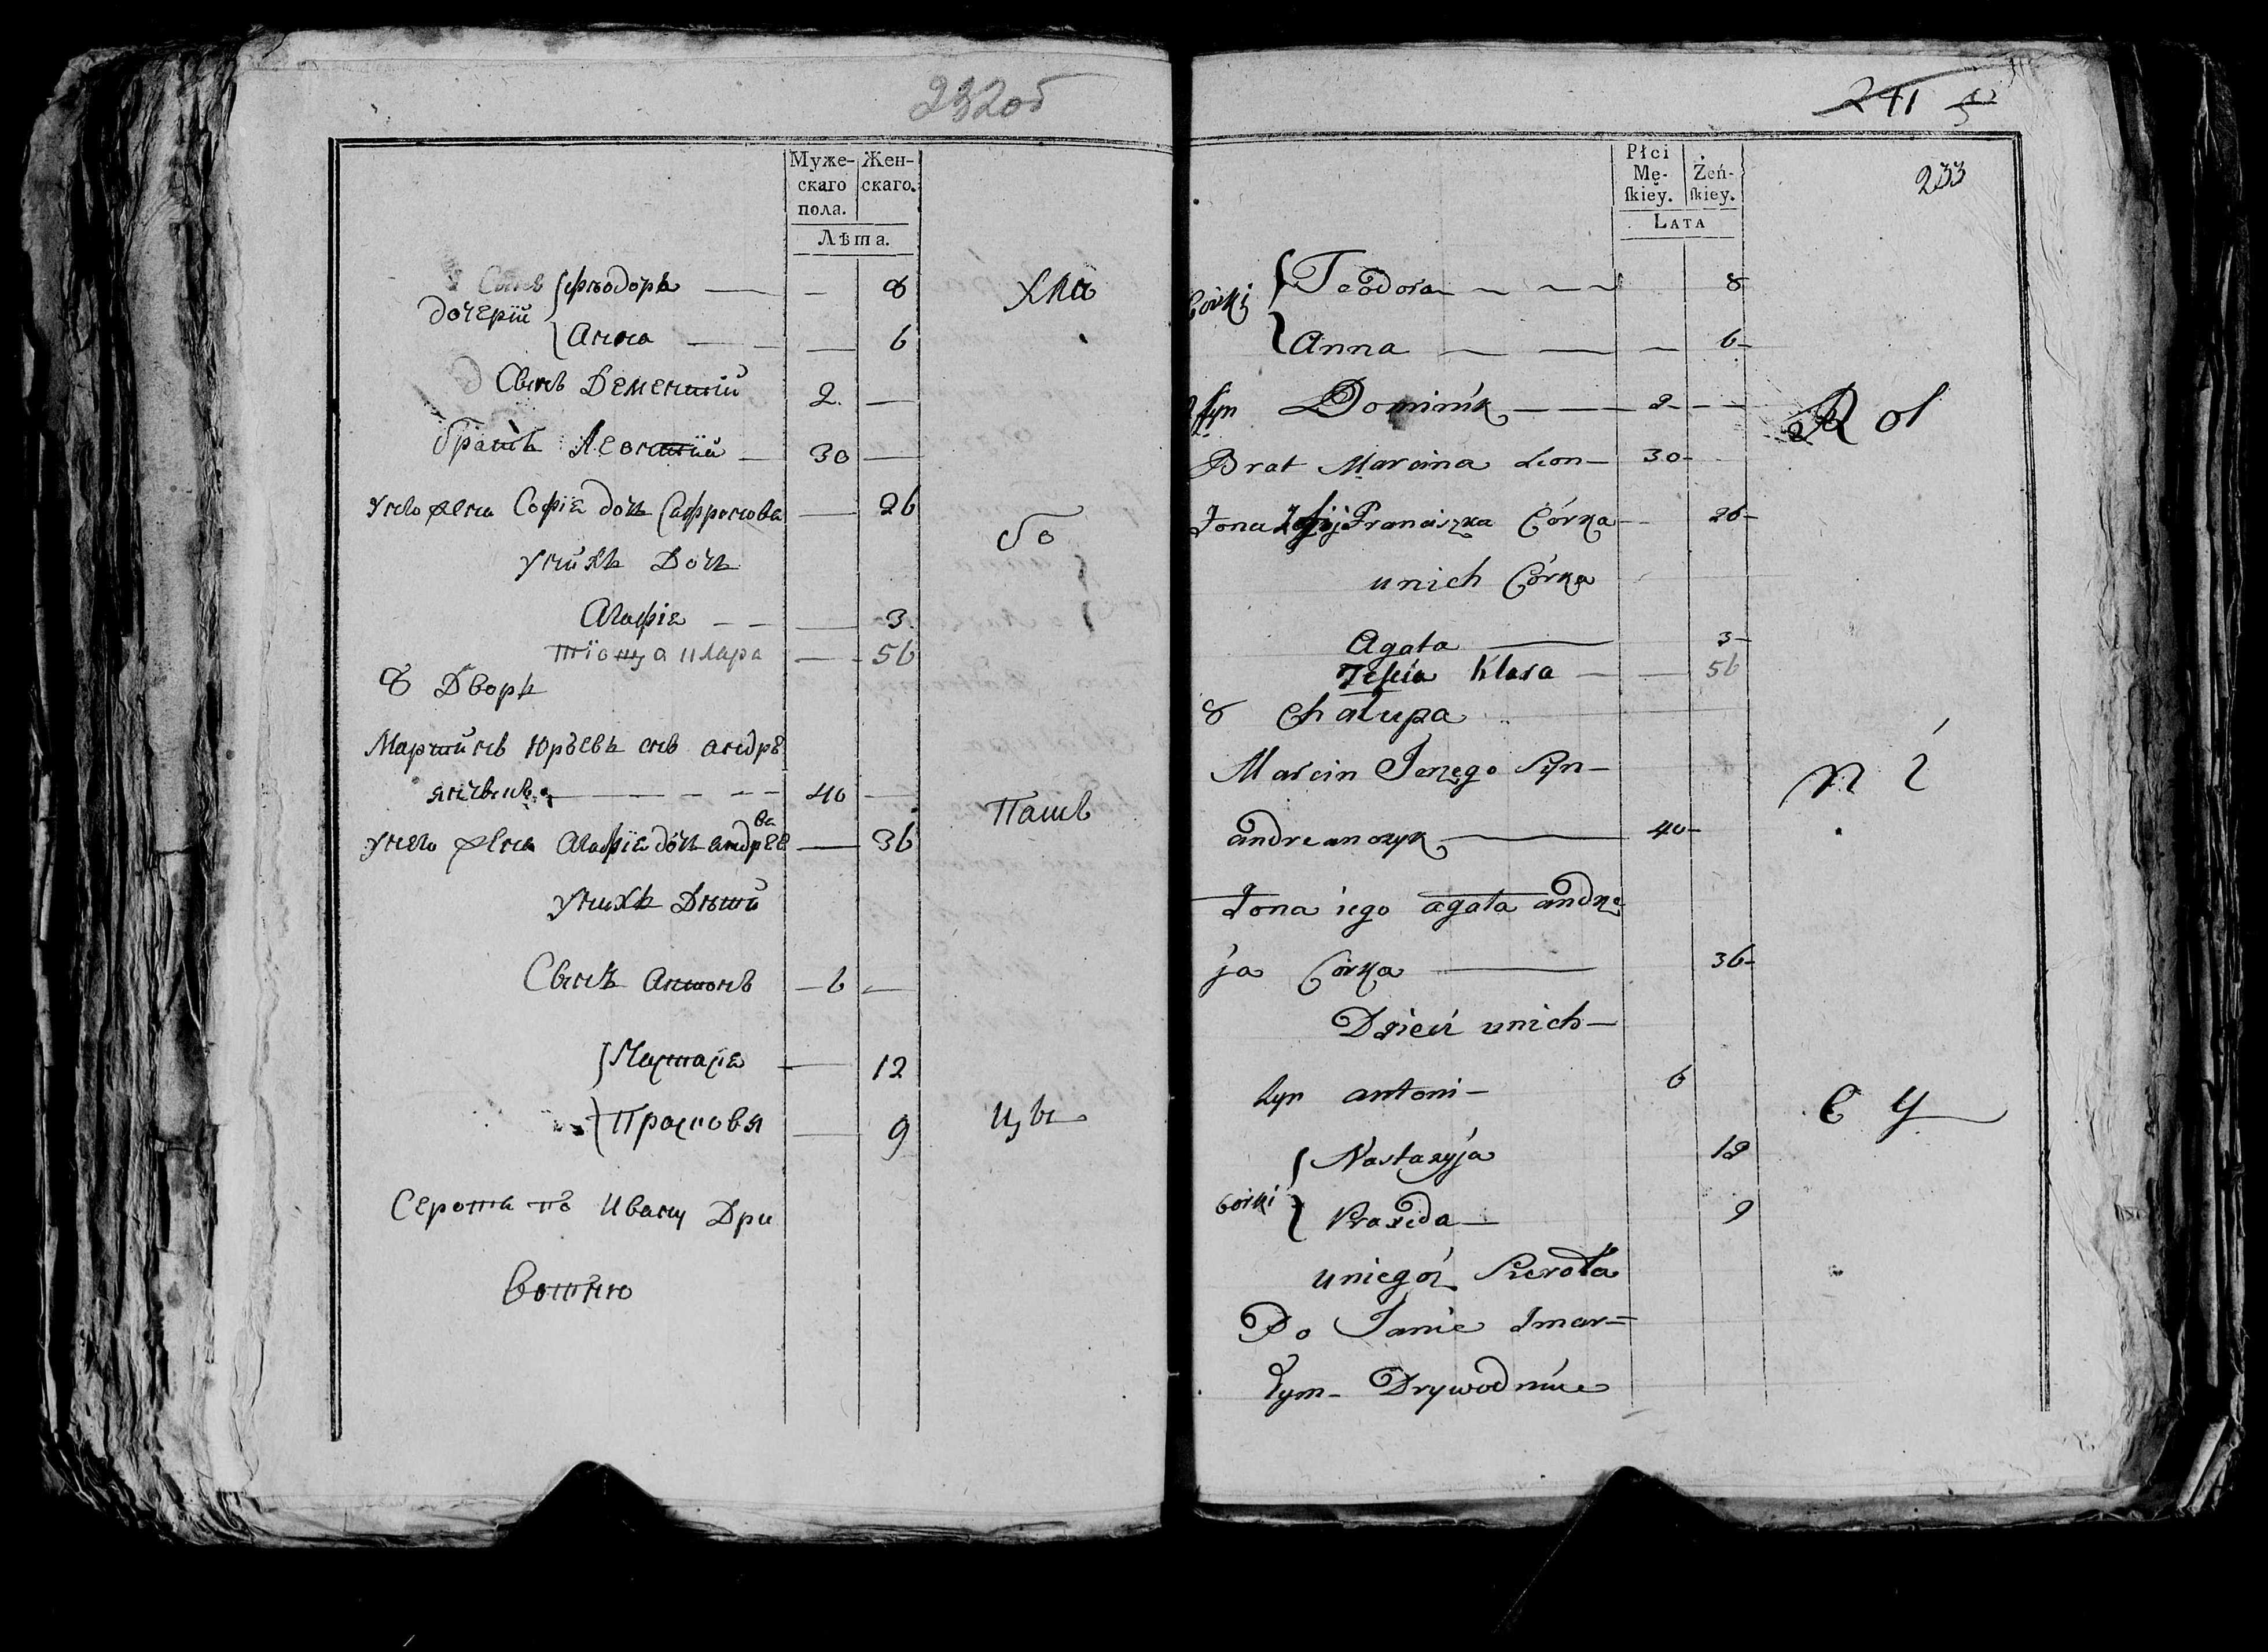 232об
Муже-
скаго
пола.
Жен-
скаго.
Лѣта.
дочерiй
Ѳѣодора 8
Анна 6
Сынъ Дементiй 2
братъ Леонтiй 30
унево жена Софiя дочь Сафронова 26
унихъ Дочь
Агафiя 3
тiоща клара 56
8 Дворъ
Мартинъ Юрьевъ снъ андрѣ
янчикъ 40
унево жена Агафiя дочь андрѣева 36
унихъ Дѣти
Сынъ Антонъ 6
Настасiя 12
Прасковя 9
Серота по Ивану Дри
вотню
хли
бо
Паш
цы
241
233
Płci
Mę-
ſkiey.
Żeń-
ſkiey.
Lata
Corki
Teodora 8
Anna 6
Syn Dominik 2
Brat Marcina Leon 30
Żona Zofij Franciszka Córka 26
unich Córka
Agata 3
Teścia Klara 56
8 Chalupa
Marcin Jerzego Syn
andreanczyk 40
Żona iego agata andrze
ja Corka 36
Dzieci unich
Syn antoni 6
Corki
Nastazyja 12
Praxeda 9
uniegoz Sierota
Po Janie Zmar=
łym Drywotniue
Rol
ni
cy